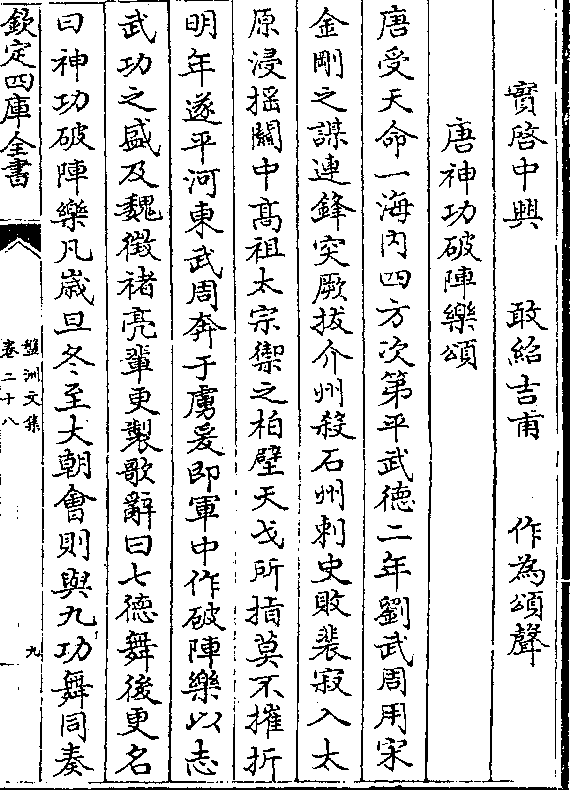 實啓中興 敢紹吉甫 作為頌聲
唐神功破陣樂頌
唐受天命一海内四方次第平武德二年劉武周用宋
金剛之謀連鋒突厥拔介州殺石州刺史敗裴寂入太
原浸揺關中髙祖太宗禦之柏壁天戈所指莫不摧折
明年遂平河東武周奔于虜爰即軍中作破陣樂以志
武功之盛及魏徵禇亮輩更製歌辭曰七德舞後更名
曰神功破陣樂凡嵗旦冬至大朝會則與九功舞同奏
欽定四庫全書
盤洲文集
卷二十八
九